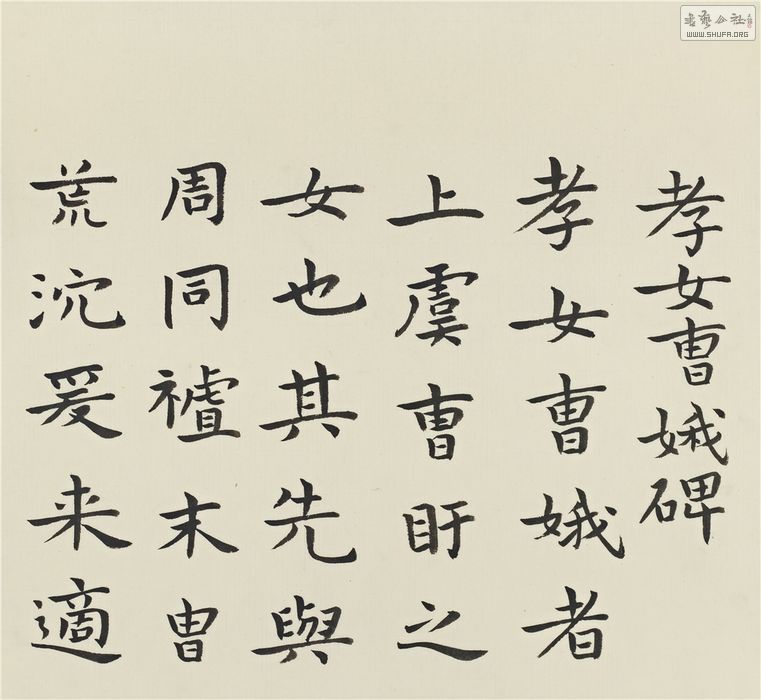 孝女曹娥碑
孝女曹娥者
上虞曹盱之
女也其先與
周同末胄
荒沈爰来適
書藝公社
WWW.SHUFA.ORG